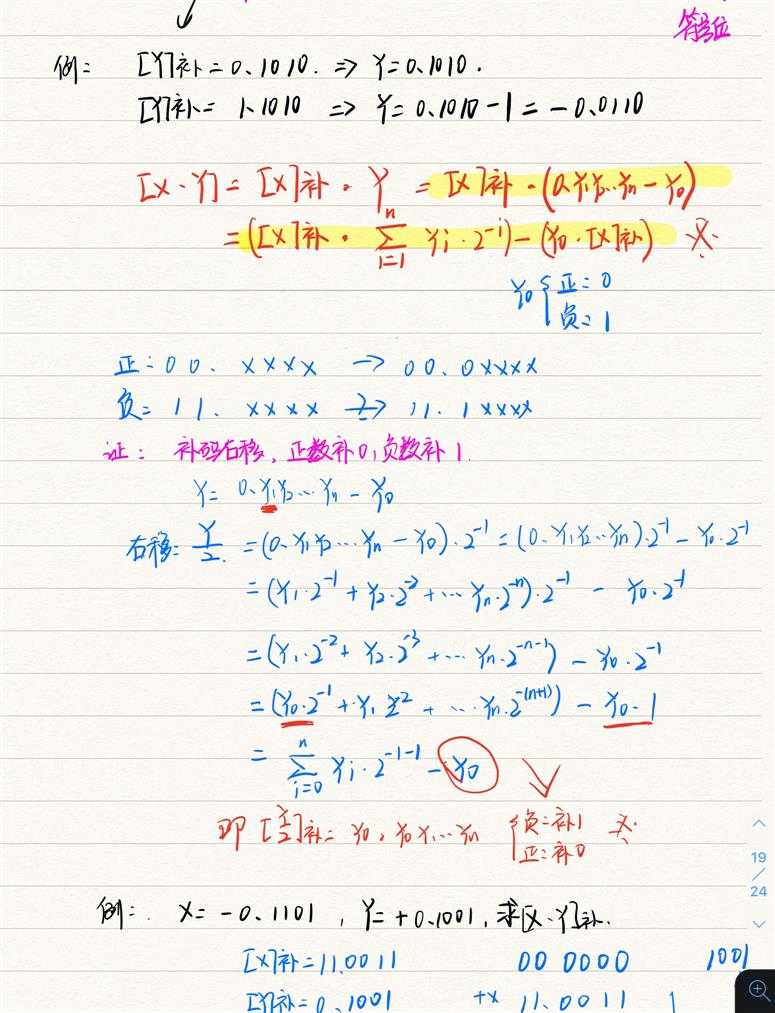 符号位
例: [Y]补=0.1010. ⇒ Y=0.1010.
[Y]补= 1.1010 ⇒ Y= 0.1010-1 = -0.0110
[X·Y]= [X]补 · Y = [X]补·(0.Y₁Y₂…Yₙ-Y₀)
=([X]补· ∑ᵢ₌₁ⁿ Yᵢ·2⁻ⁱ)-(Y₀·[X]补) ※
Y₀{正=0
负=1
正:00. ×××× → 00.0××××
负= 11. ×××× → 11.1××××
证: 补码右移,正数补0,负数补1.
Y= 0.Y₁Y₂…Yₙ-Y₀
右移: Y/2 =(0.Y₁Y₂…Yₙ-Y₀)·2⁻¹=(0.Y₁Y₂…Yₙ)·2⁻¹-Y₀·2⁻¹
=(Y₁·2⁻¹+Y₂·2⁻²+…Yₙ·2⁻ⁿ)·2⁻¹ - Y₀·2⁻¹
=(Y₁·2⁻²+ Y₂·2⁻³+…Yₙ·2⁻ⁿ⁻¹) - Y₀·2⁻¹
=(Y₀·2⁻¹+Y₁ 2⁻²+ …Yₙ·2⁻⁽ⁿ⁺¹⁾) - Y₀·1
= ∑ᵢ₌₀ⁿ Yᵢ·2⁻ⁱ⁻¹-Y₀
即 [Y/2]补= Y₀.Y₀Y₁…Yₙ {负=补1 ※
正=补0
19
/
24
例: X= -0.1101 , Y=+0.1001,求[X·Y]补.
[X]补=11.0011 00 0000 1001
[Y]补=0.1001 +x 11.0011 1